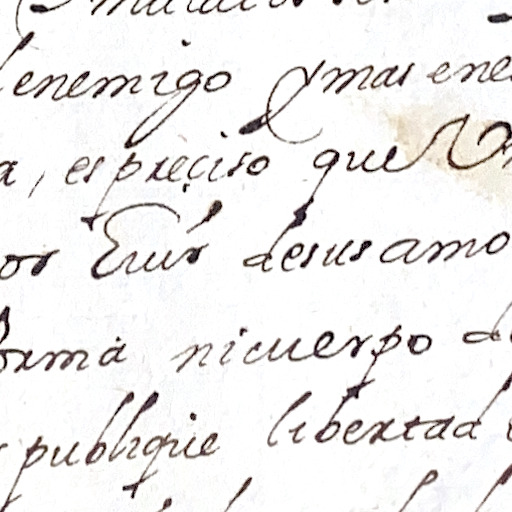 enemigo y mas ene
a, es preçiso que
or desus amo
forma nicuerpo de
publique libertad